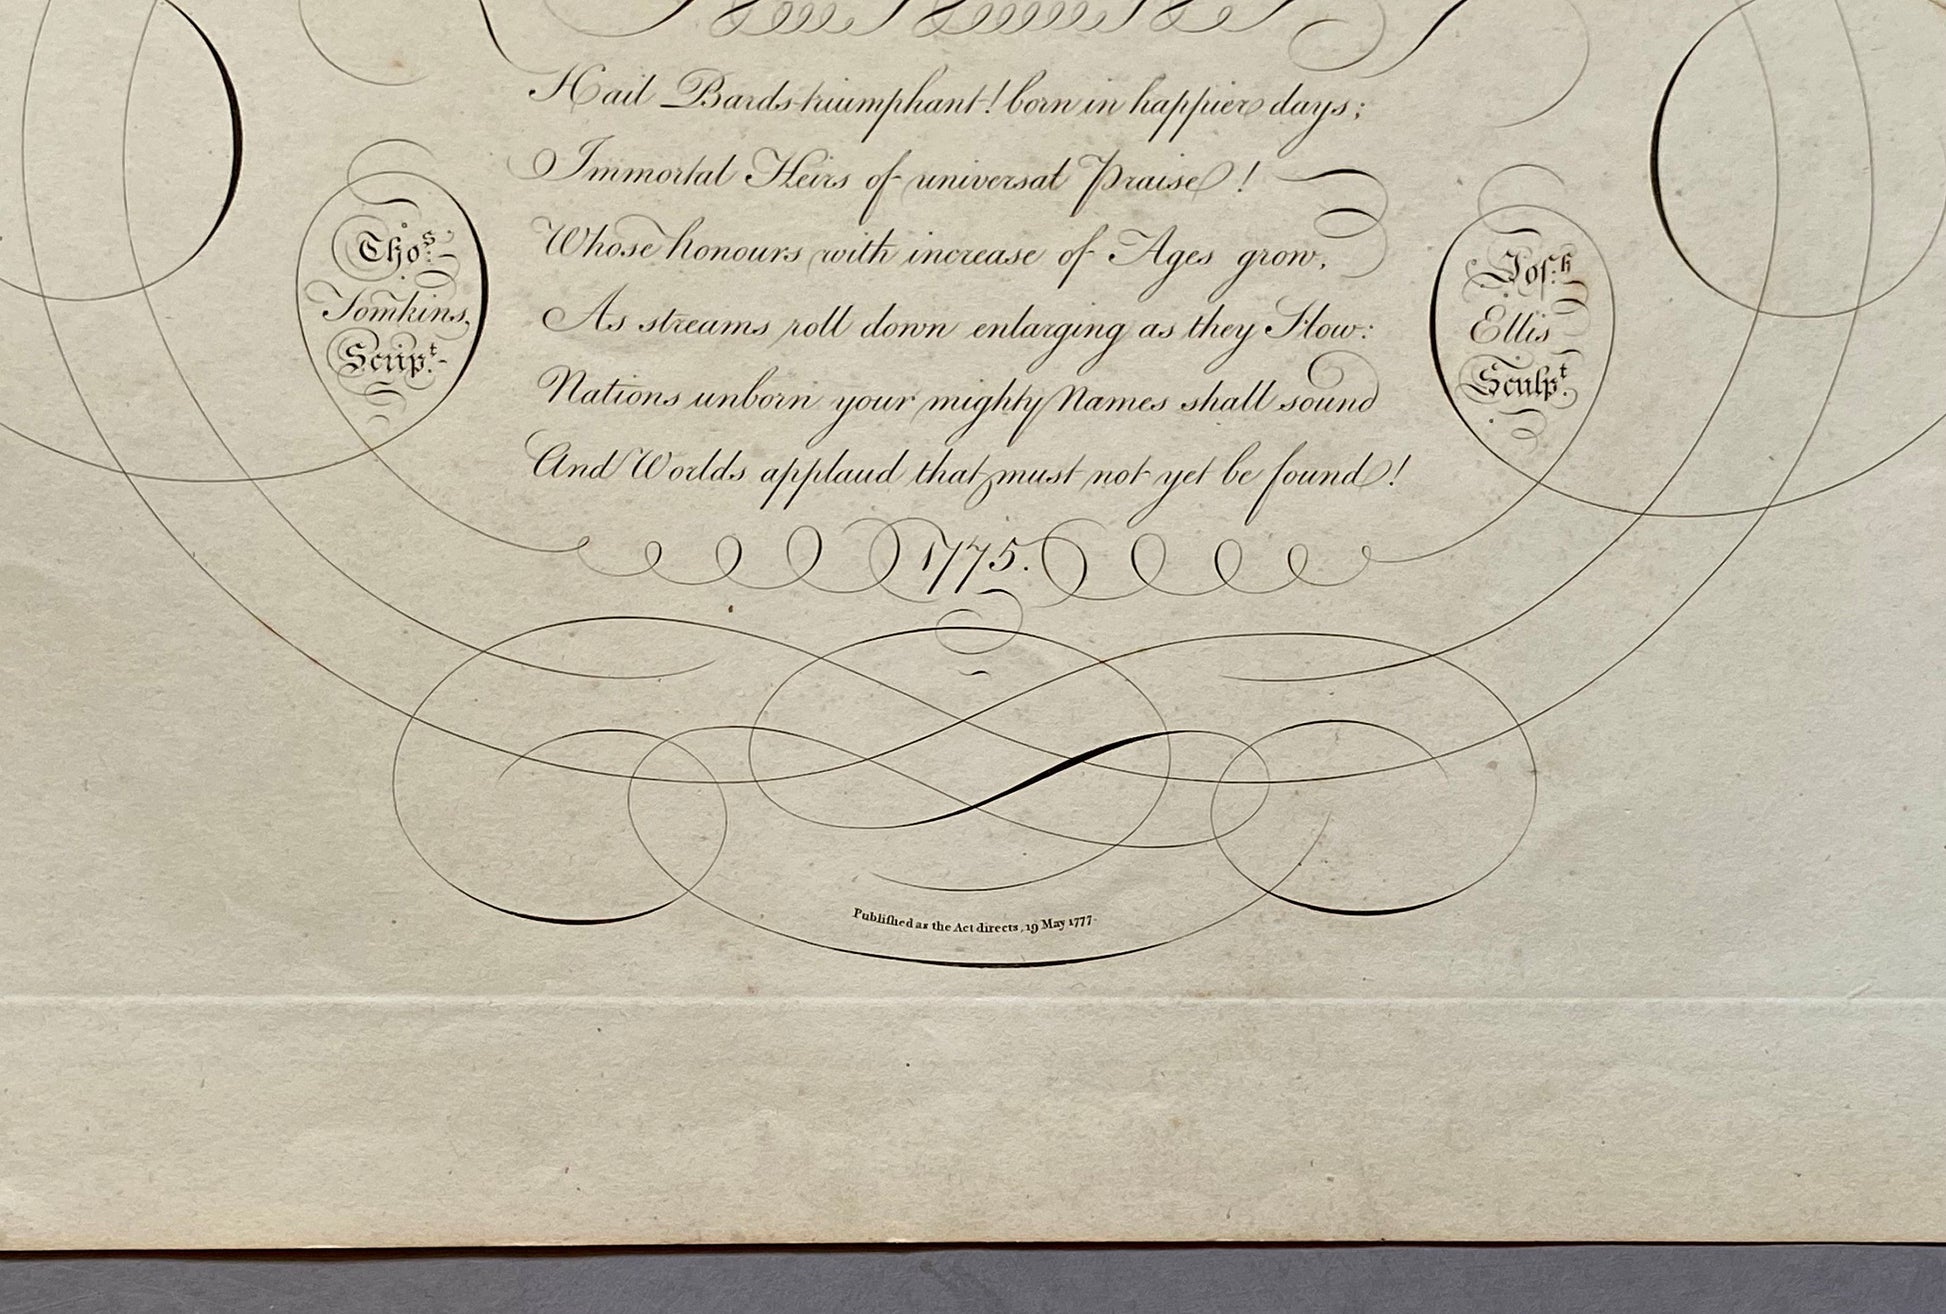 Hail Bards triumphant! born in happier days;
Immortal Heirs of universal Praise!
Whose honours with increase of Ages grow,
As streams roll down enlarging as they Flow:
Nations unborn your mighty Names shall sound
And Worlds applaud that must not yet be found!
1775.
Thoˢ.
Tomkins,
Scripᵗ.
Joſ.ʰ
Ellis
Sculpᵗ.
Publiſhed as the Act directs, 19 May 1777.